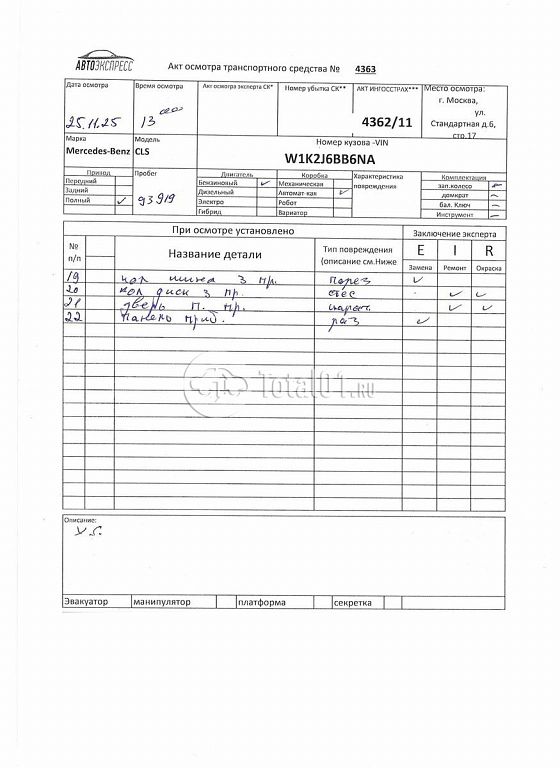 АВТОЭКСПРЕСС
Акт осмотра транспортного средства № 4363
Дата осмотра
25.11.25
Время осмотра
13 00
Акт осмотра эксперта СК*
Номер убытка СК**
АКТ ИНГОССТРАХ***
4362/11
Место осмотра:
г. Москва,
ул.
Стандартная д.6,
стр.17
Марка
Mercedes-Benz
Модель
CLS
Номер кузова -VIN
W1K2J6BB6NA
Привод
Передний
Задний
Полный
Пробег
93919
Двигатель
Бензиновый
Дизельный
Электро
Гибрид
Коробка
Механическая
Автомат-кая
Робот
Вариатор
Характеристика
повреждения
Комплектация
зап.колесо
домкрат
бал. Ключ
Инструмент
При осмотре установлено
Заключение эксперта
№
п/п
Название детали
Тип повреждения
(описание см.Ниже
E I R
Замена Ремонт Окраска
19 кол шина з пр. порез
20 кол диск з пр.
21 дверь п. пр. царап.
22 панель приб. раз
Total01.RU
Описание:
Эвакуатор манипулятор платформа секретка